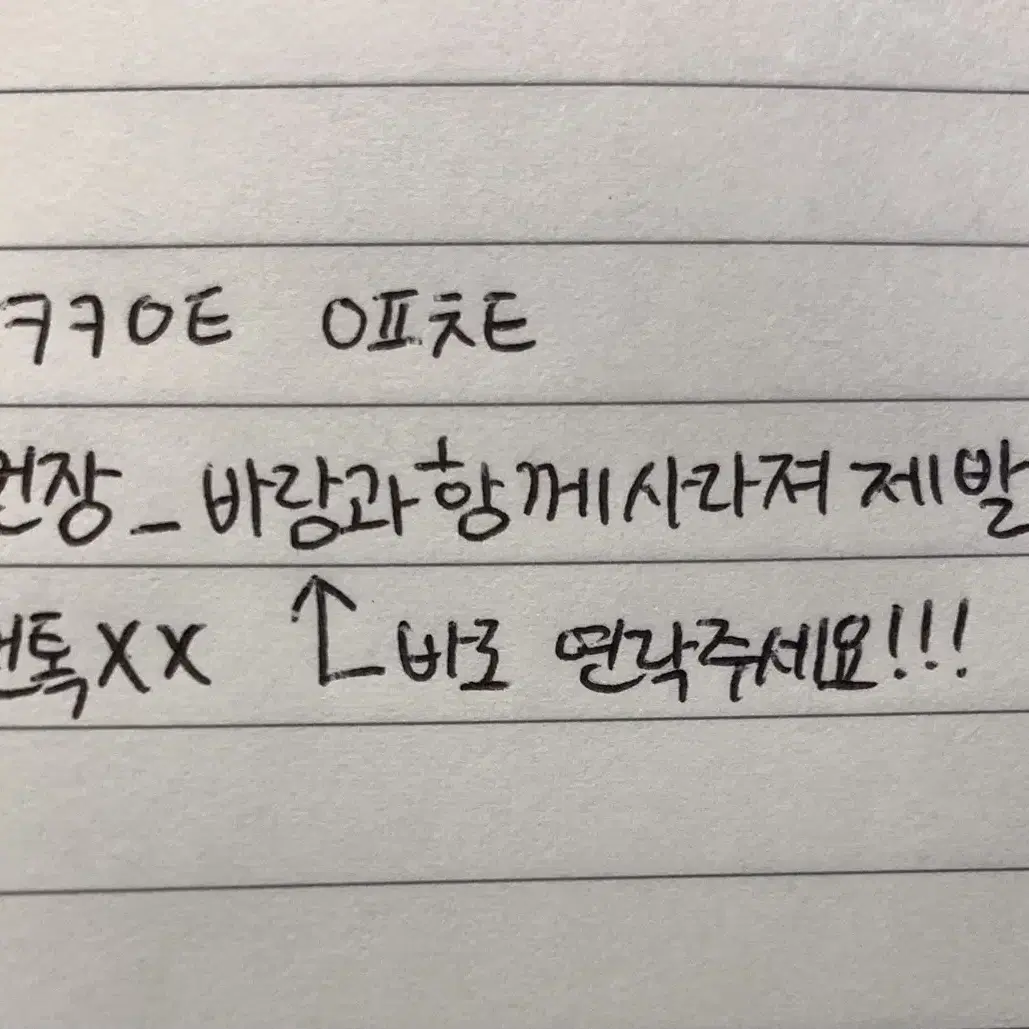 ㅋㅋㅇㅌ ㅇㅍㅊㅌ
_바람과함께사라져제발
XX ↑바로 연락주세요!!!